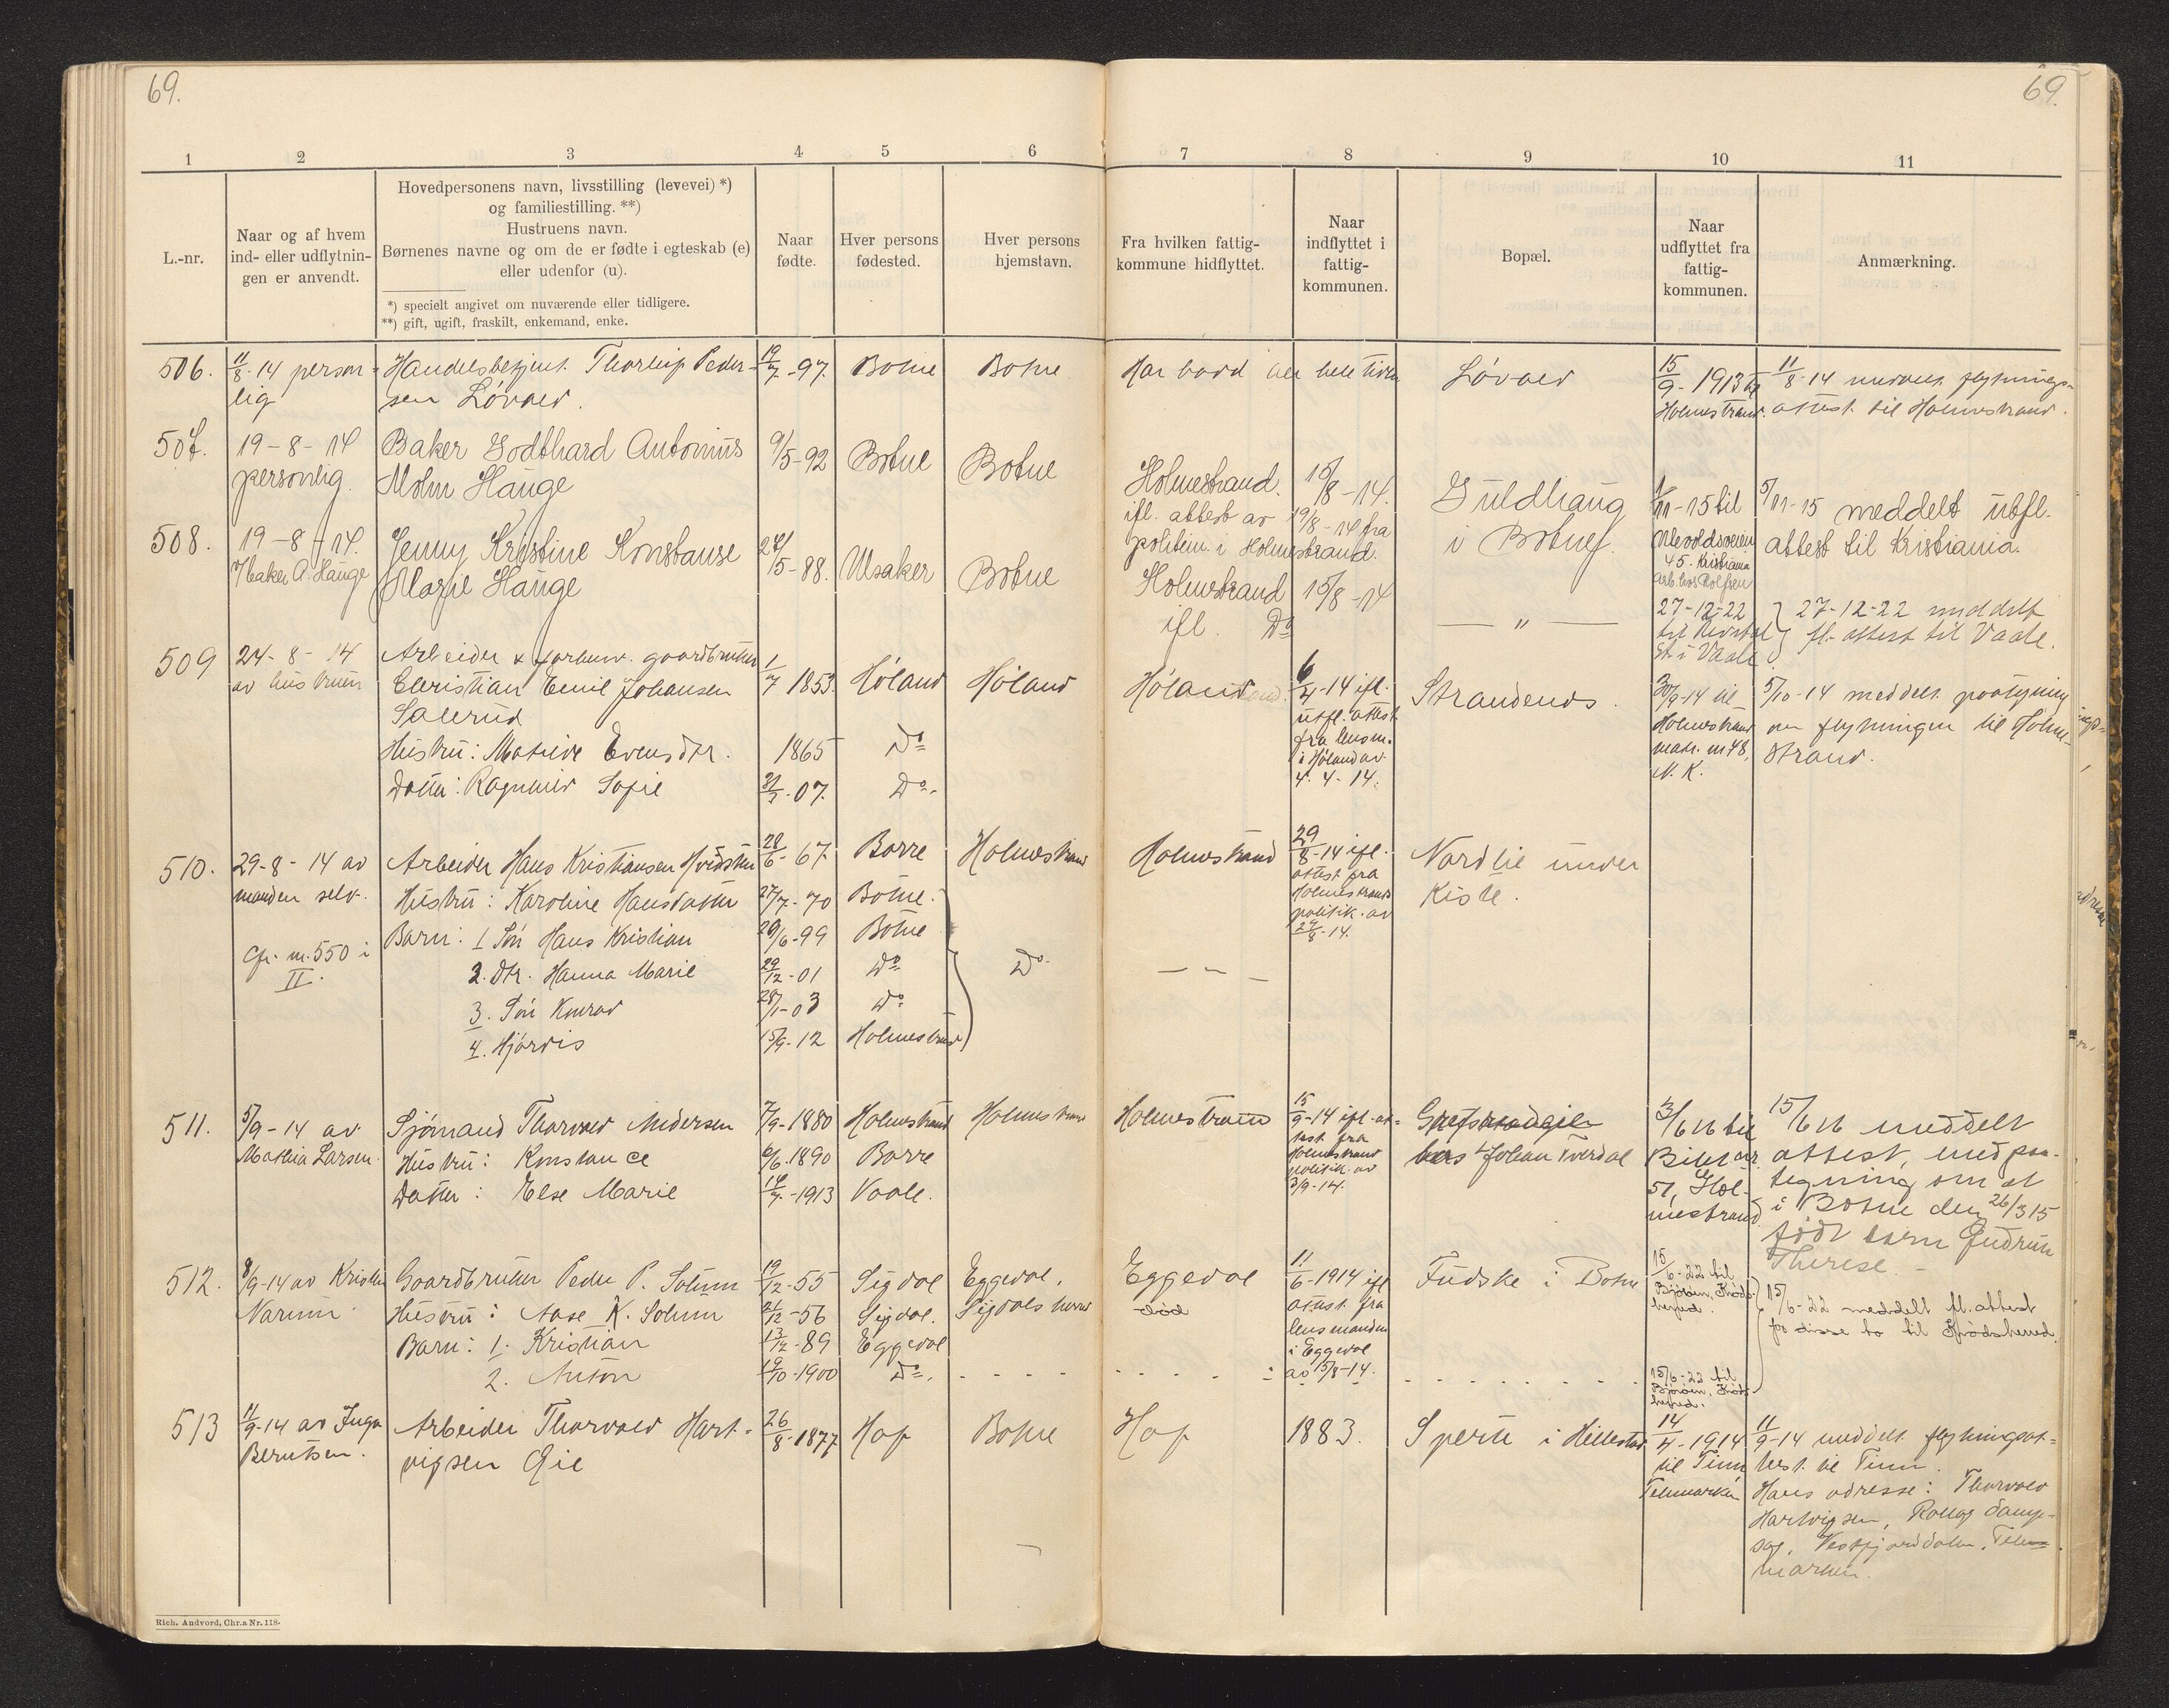 69.
69.
1 2 3 4 5 6 7 8 9 10 11
L.-nr.
Naar og af hvem
ind- eller udflytnin-
gen er anvendt.
Hovedpersonens navn, livsstilling (levevei) *)
og familiestilling. **)
Hustruens navn.
Børnenes navne og om de er fødte i egteskab (e)
eller udenfor (u).
*) specielt angivet om nuværende eller tidligere.
**) gift, ugift, fraskilt, enkemand, enke.
Naar
fødte.
Hver persons
fødested.
Hver persons
hjemstavn.
Fra hvilken fattig-
kommune hidflyttet.
Naar
indflyttet i
fattig-
kommunen.
Bopæl.
Naar
udflyttet fra
fattig-
kommunen.
Anmærkning.
506.
11/8-14 person-
lig
Handelsbetjent Thorleif Peder-
sen Løvaas.
19/7-97.
Botne
Botne
Har bodd her hele tiden
15/9-1913 til
Holmestrand.
11/8-14 meddelt flytnings-
attest til Holmestrand.
507.
19-8-14
personlig.
Baker Godthard Antonius
Holm Hauge
9/5-92
Botne
Botne
Holmestrand.
ifl. attest av
politim. i Holmestrand.
15/8-14.
19/8-14 fra
Guldhaug
i Botne
1/11-15 til
Ullevoldsveien
45. Kristiania
arb. hos Rolfsen
5/11-15 meddelt utfl.
attest til Kristiania.
508.
19-8-14.
v/baker A. Hauge
Jenny Kristine Konstanse
Marie Hauge
24/5-88.
Botne
Holmestrand
ifl. Do
15/8-14
— " —
27-12-22
St. i Vaale
27-12-22 meddelt
fl. attest til Vaale.
509
24-8-14
av hustruen
Arbeider & forhenv. gaardbruker
Christian Emil Johansen
Salerud
Hustru: Matilde Evensdtr.
Datter: Ragnhild Sofie
1/7 1853.
1865
31/7-07.
Høland
Do
Do
Høland
Høland
6/4-14 ifl.
utfl. attest
fra lensm.
i Høland av
4.4-14.
Strandends.
30/9-14 til
Holmestrand
matr. nr 48,
N.K.
5/10-14 meddelt paategning
om flytningen til Holme-
strand.
510.
29-8-14 av
manden selv.
Cfr. nr. 550 i
II.
Arbeider Hans Kristiansen Hvidsten
Hustru: Karoline Hansdatter
Barn: 1 Søn Hans Kristian
2. Dtr. Hanna Marie
3. Søn Konrad
4. Hjørdis
28/6-67
27/7-70
20/6-99
29/12-01
28/1-03
15/9-12
Borre
Botne.
Botne
Do
Do
Holmestrand
Holmestrand
Do
Holmestrand
29/8-14 ifl.
attest fra
Holmestrands
politik. av
29/8-14.
Nordlie under
Kiste.
511.
5/9-14 av
Mathia Larsen
Sjømand Thorvald Andersen
Hustru: Konstance
Datter: Else Marie
7/9-1880
6/6.1890
14/7-1913
Holmestrand
Borre
Vaale.
Holmestrand
Holmestrand
15/9-14 ifl. at-
test fra
Holmestrand
politik. av
3/9-14.
hos Johan Tverdal
3/6 16 til
51, Hol-
mestrand
15/6 16 meddelt
attest, med paa-
tegning om at
i Botne den 26/3 15
født barn Gudrun
Therese.
512.
8/9-14 av Kristen
Narum
Gaardbruker Peder P. Solum
Hustru: Aase K. Solum
Barn: 1. Kristian
2. Anton
19/12-55
21/12-56
13/12-89
19/10-1900
Sigdal
Sigdal.
Eggedal
Do.
Eggedal,
Sigdals herred
Eggedal
11/6-1914 ifl
attest fra
lensmanden
i Eggedal
av 15/8-14.
Fudske i Botne
15/6-22 til
Bjøroen, Kröds-
herred.
15/6-22 til
Bjøroen, Kröds-
herred.
15/6-22 meddelt fl. attest
for disse to til Krødsherred.
513
11/9-14 av Inga
Berntsen.
Arbeider Thorvald Hart-
vigsen Gie
26/8-1877
Hof
Botne
Hof
1883.
i Hillestad
14/4-1914
til Tinn
Telemarken
11/9-14 meddelt flytningsat-
test til Tinn.
Hans adresse: Thorvald
Hartvigsen, Rollag Damp-
sag, Vestfjorddalen, Tele-
marken.
Rich. Andvord, Chr.a Nr. 118.